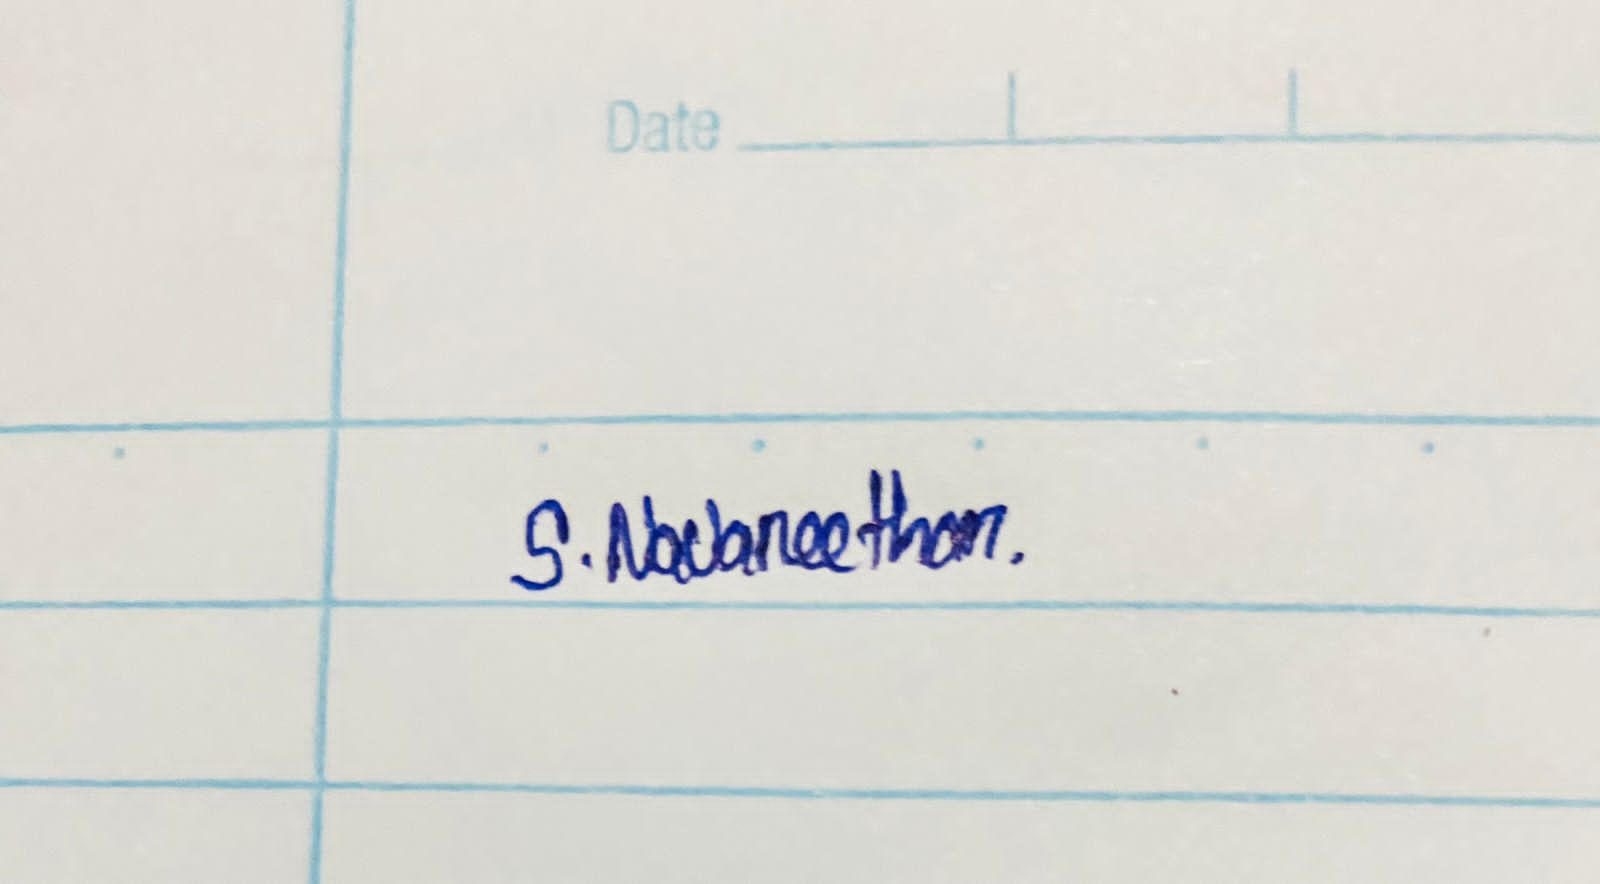 Date
S. Navaneethan.